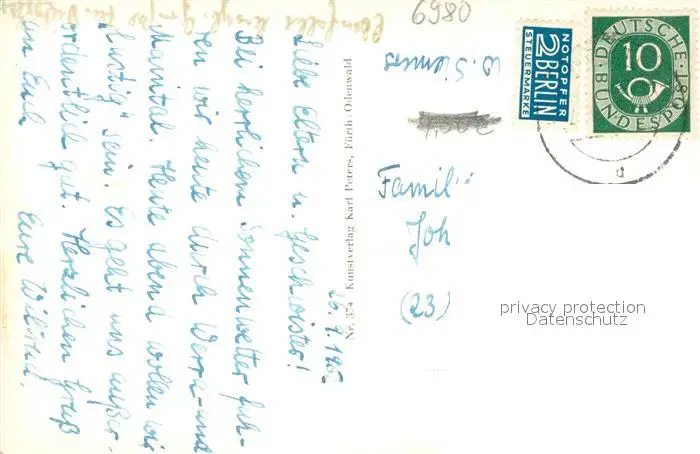 6980
26.7.195
Liebe Eltern u. Geschwister!
Bei herrlichem Sonnenwetter fuh-
ren wir heute durch Werra- und
Maintal. Heute abend wollen wir
"lustig" sein. Es geht uns außer-
ordentlich gut. Herzlichen Gruß
an Euch
Eure Wiltrud.
Nr. 374 Kunstverlag Karl Peters, Fürth - Odenwald
Famili
Joh
(23)
NOTOPFER
2 BERLIN
STEUERMARKE
DEUTSCHE
10
BUNDESPOST
privacy protection
Datenschutz